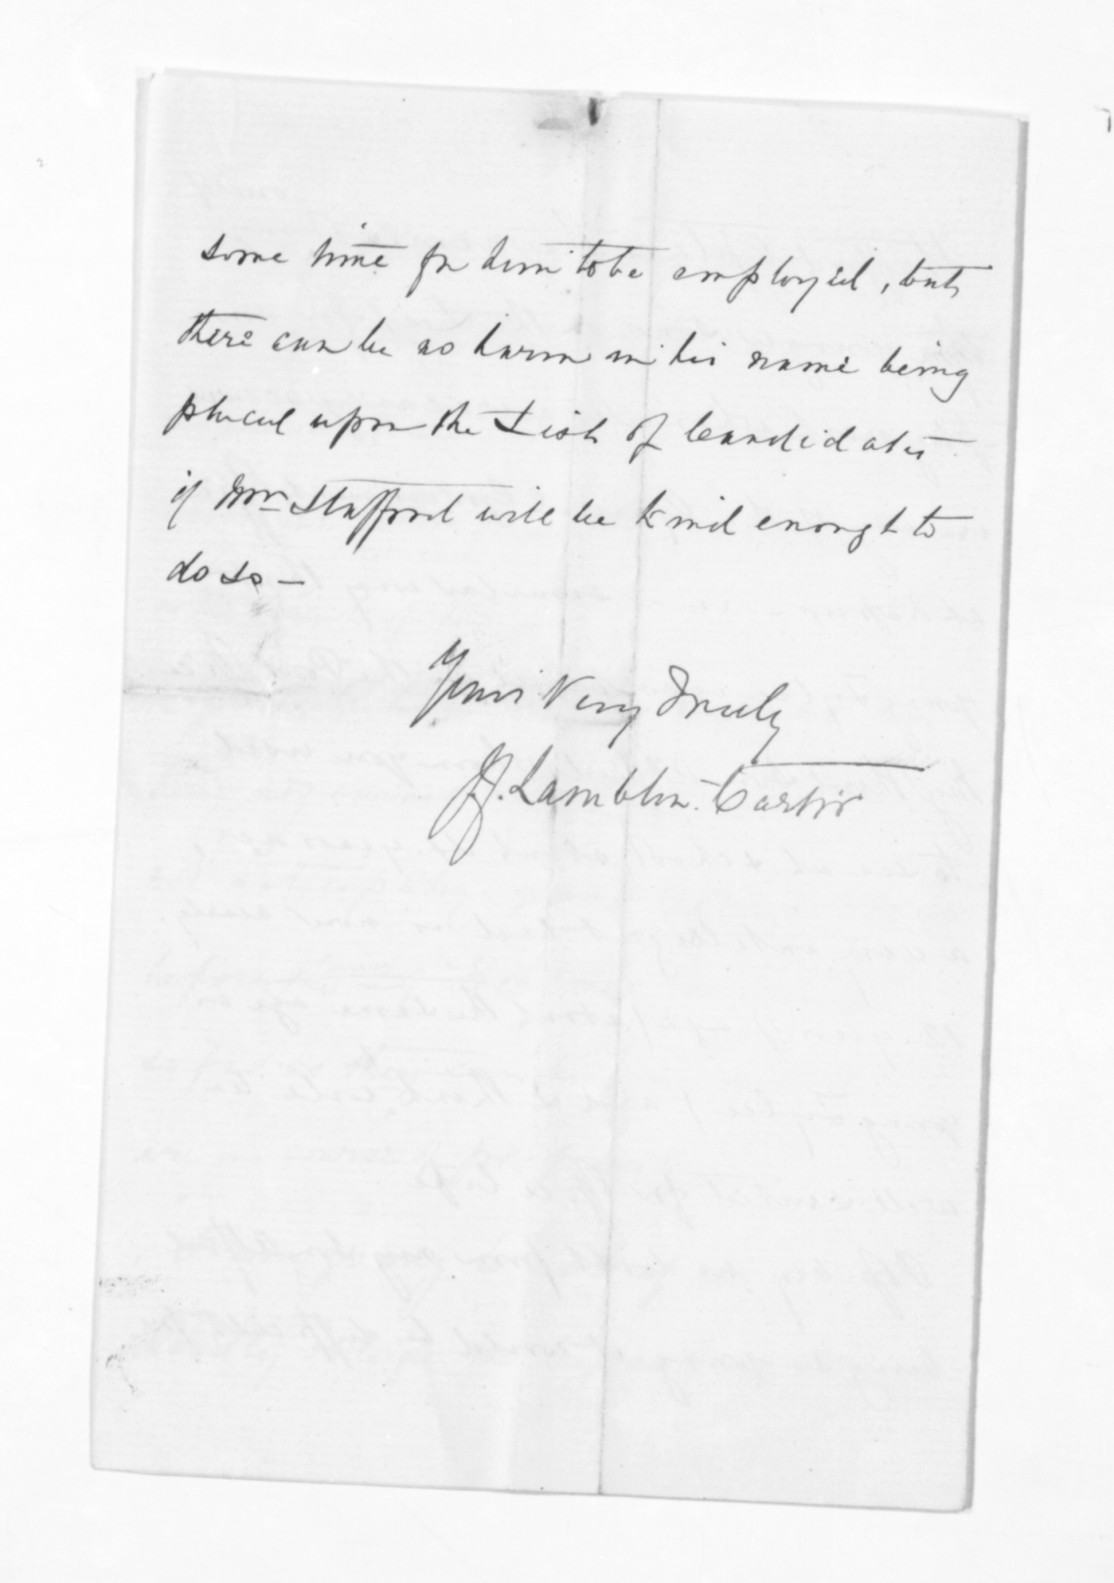 some time for him to be employed, but
there can be no harm in his name being
placed upon the List of Candidates
if Mr. Stafford will be kind enough to
do so —
Yours Very Truly
J. Lamblin Carter